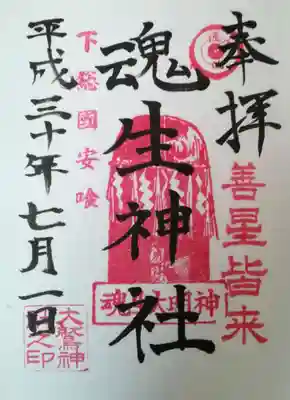 奉拝
善星皆来
魂生神社
魂生大明神
下総國安喰
平成三十年七月一日
大鷲神社之印